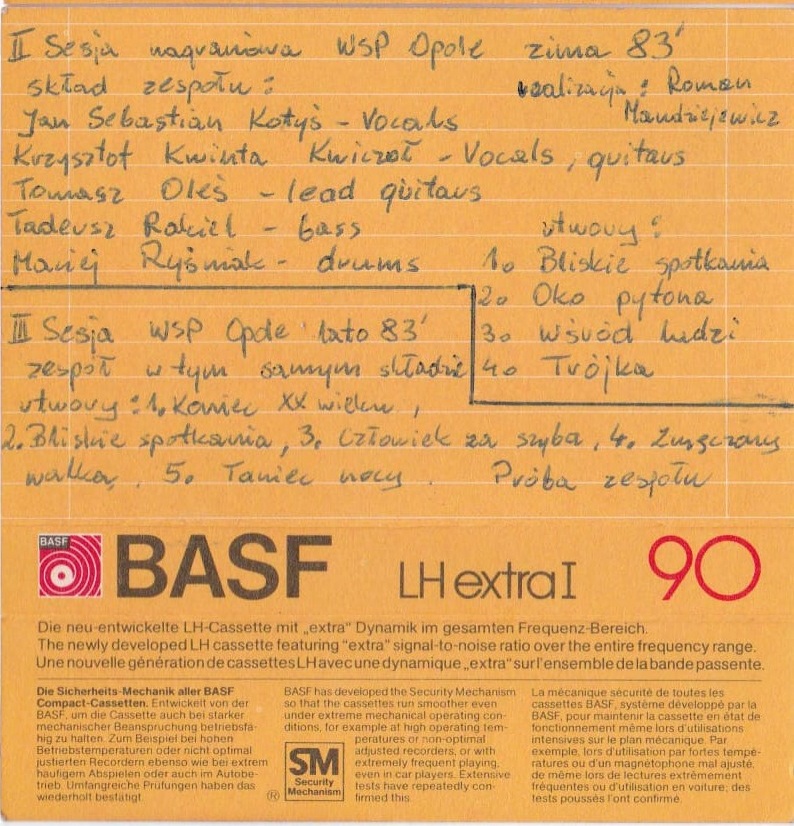 II Sesja nagraniowa WSP Opole zima 83'
skład zespołu:
realizacja: Roman
Mandziejewicz
Jan Sebastian Kotyś - Vocals
Krzysztof Kwinta Kwiczoł - Vocals, guitars
Tomasz Oleś - lead guitars
Tadeusz Rakiel - bass
Maciej Ryśniak - drums
utwory:
1. Bliskie spotkania
2. Oko pytona
3. Wśród ludzi
4. Trójka
III Sesja WSP Opole lato 83'
zespół w tym samym składzie
utwory: 1. Koniec XX wieku,
2. Bliskie spotkania, 3. Człowiek za szybą, 4. Zmęczony
walką, 5. Taniec nocy. Próba zespołu
BASF
BASF LH extra I 90
Die neu-entwickelte LH-Cassette mit „extra" Dynamik im gesamten Frequenz-Bereich.
The newly developed LH cassette featuring "extra" signal-to-noise ratio over the entire frequency range.
Une nouvelle génération de cassettes LH avec une dynamique „extra" sur l'ensemble de la bande passente.
Die Sicherheits-Mechanik aller BASF
Compact-Cassetten. Entwickelt von der
BASF, um die Cassette auch bei starker
mechanischer Beanspruchung betriebsfä-
hig zu halten. Zum Beispiel bei hohen
Betriebstemperaturen oder nicht optimal
justierten Recordern ebenso wie bei extrem
häufigem Abspielen oder auch im Autobe-
trieb. Umfangreiche Prüfungen haben das
wiederholt bestätigt.
BASF has developed the Security Mechanism
so that the cassettes run smoother even
under extreme mechanical operating con-
ditions, for example at high operating tem-
peratures or non-optimal
adjusted recorders, or with
extremely frequent playing,
even in car players. Extensive
tests have repeatedly con-
firmed this.
®
SM
Security
Mechanism
La mécanique sécurité de toutes les
cassettes BASF, système développé par la
BASF, pour maintenir la cassette en état de
fonctionnement même lors d'utilisations
intensives sur le plan mécanique. Par
exemple, lors d'utilisation par fortes tempé-
ratures ou d'un magnétophone mal ajusté,
de même lors de lectures extrêmement
fréquentes ou d'utilisation en voiture; des
tests poussés l'ont confirmé.